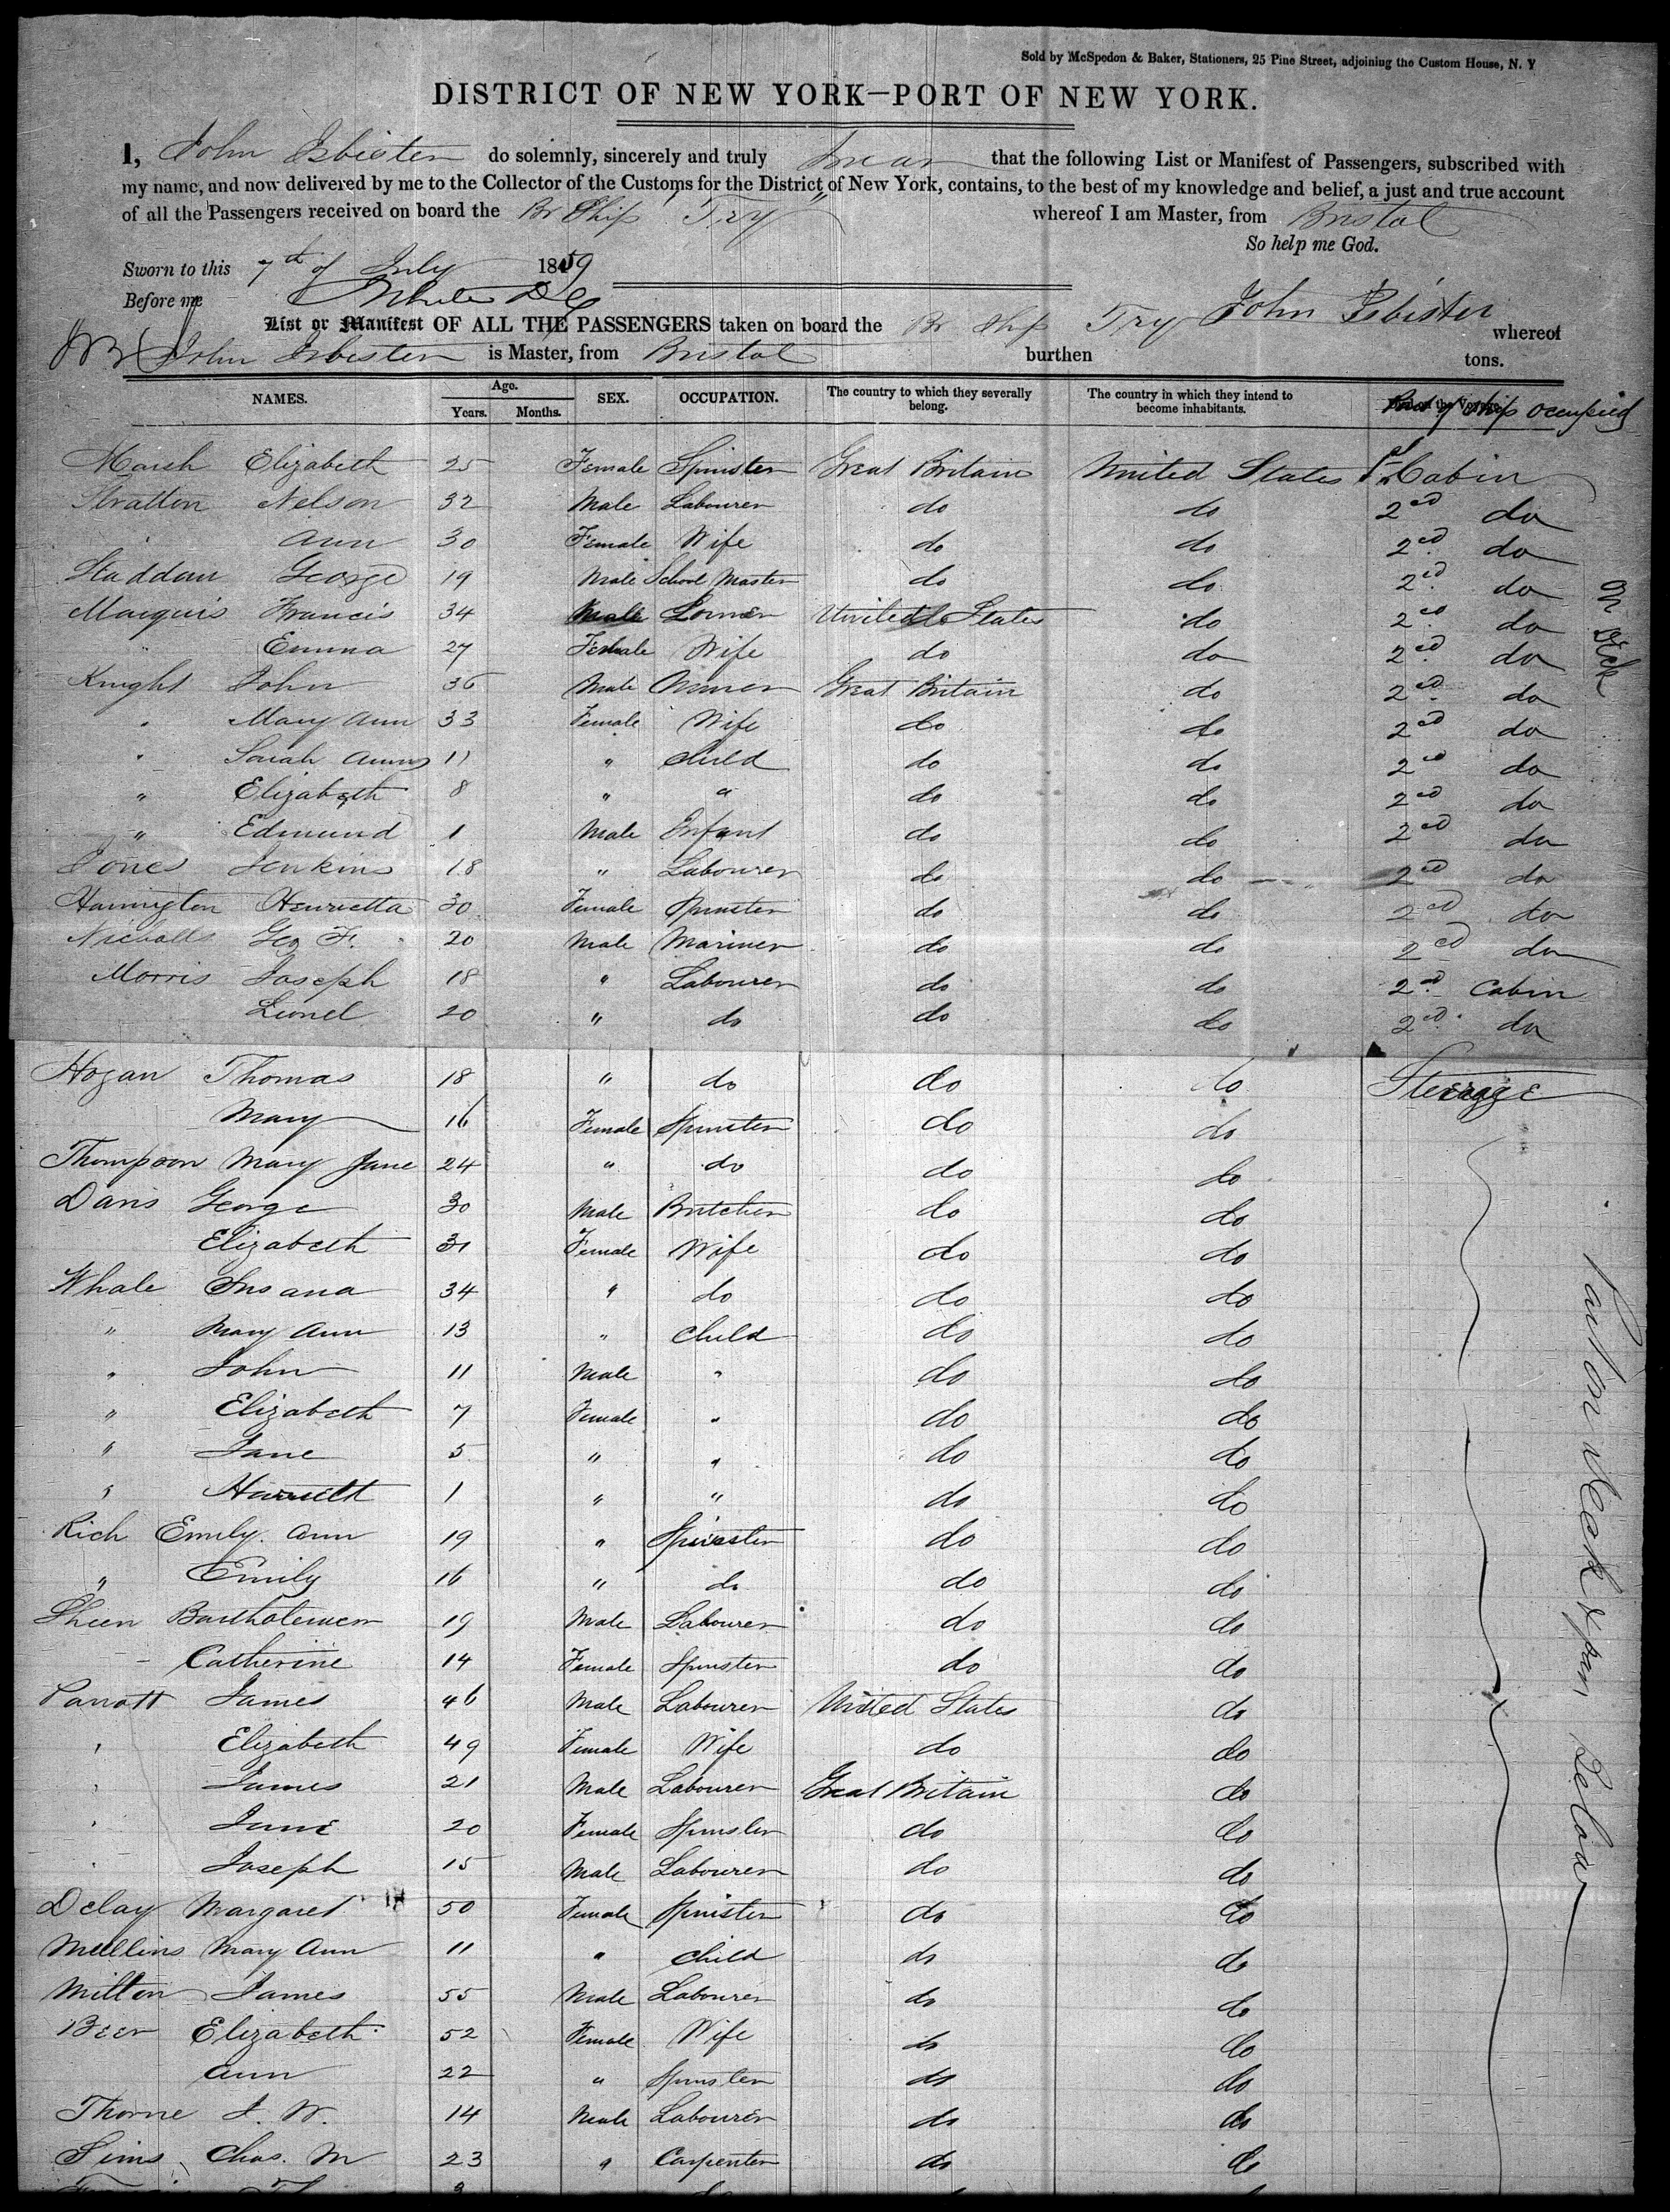 Sold by McSpedon & Baker, Stationers, 25 Pine Street, adjoining the Custom House, N. Y
DISTRICT OF NEW YORK—PORT OF NEW YORK.
I, John Isbister do solemnly, sincerely and truly swear that the following List or Manifest of Passengers, subscribed with
my name, and now delivered by me to the Collector of the Customs for the District of New York, contains, to the best of my knowledge and belief, a just and true account
of all the Passengers received on board the Br Ship "Try" whereof I am Master, from Bristol
So help me God.
Sworn to this 7th of July 18
Before me
John Isbister
List or Manifest OF ALL THE PASSENGERS taken on board the Br Ship Try whereof
John Isbister is Master, from Bristol burthen tons.
NAMES. Age. Years. Months. SEX. OCCUPATION. The country to which they severally belong. The country in which they intend to become inhabitants. Part of ship occupied
Marsh Elizabeth 25 Female Spinster Great Britain United States 1st Cabin
Stratton Nelson 32 Male Labourer do do 2ed do
Ann 30 Female Wife do do 2ed do
Staddan George 19 Male School Master do do 2ed do
Marquis Francis 34 Male United States do 2ed do
" Emma 27 Female Wife do do 2ed do
Knight John 36 Male Great Britain do 2ed do
" Mary Ann 33 Female Wife do do 2ed do
" Sarah Ann 11 " Child do do 2ed do
" Elizabeth 8 " " do do 2ed do
" Edmund 1 Male Infant do do 2ed do
Jones Jenkins 18 " Labourer do do 2ed do
Harrington Henrietta 30 Female Spinster do do 2ed do
Nicholls Geo F. 20 Male Mariner do do 2ed do
Morris Joseph 18 " Labourer do do 2ed Cabin
Lionel 20 " do do do 2ed do
on deck
Hogan Thomas 18 " do do do Steerage
Mary 16 Female Spinster do do
Thompson Mary Jane 24 " do do do
Davis George 30 Male Butcher do do
Elizabeth 31 Female Wife do do
Whale Susana 34 " do do do
" Mary Ann 13 " Child do do
" John 11 Male " do do
" Elizabeth 7 Female " do do
" Jane 5 " " do do
" Harriett 1 " " do do
Rich Emily Ann 19 " Spinster do do
" Emily 16 " do do do
Sheen Bartholemew 19 Male Labourer do do
Catherine 14 Female Spinster do do
Parratt James 46 Male Labourer United States do
" Elizabeth 49 Female Wife do do
" James 21 Male Labourer Great Britain do
" Jane 20 Female Spinster do do
" Joseph 15 Male Labourer do do
Delay Margaret 50 Female Spinster do do
Mullins Mary Ann 11 " Child do do
Milton James 55 Male Labourer do do
Beer Elizabeth 52 Female Wife do do
Ann 22 " Spinster do do
Thorne J. W. 14 Male Labourer do do
Sims Chas. M 23 " Carpenter do do
part on deck & part below